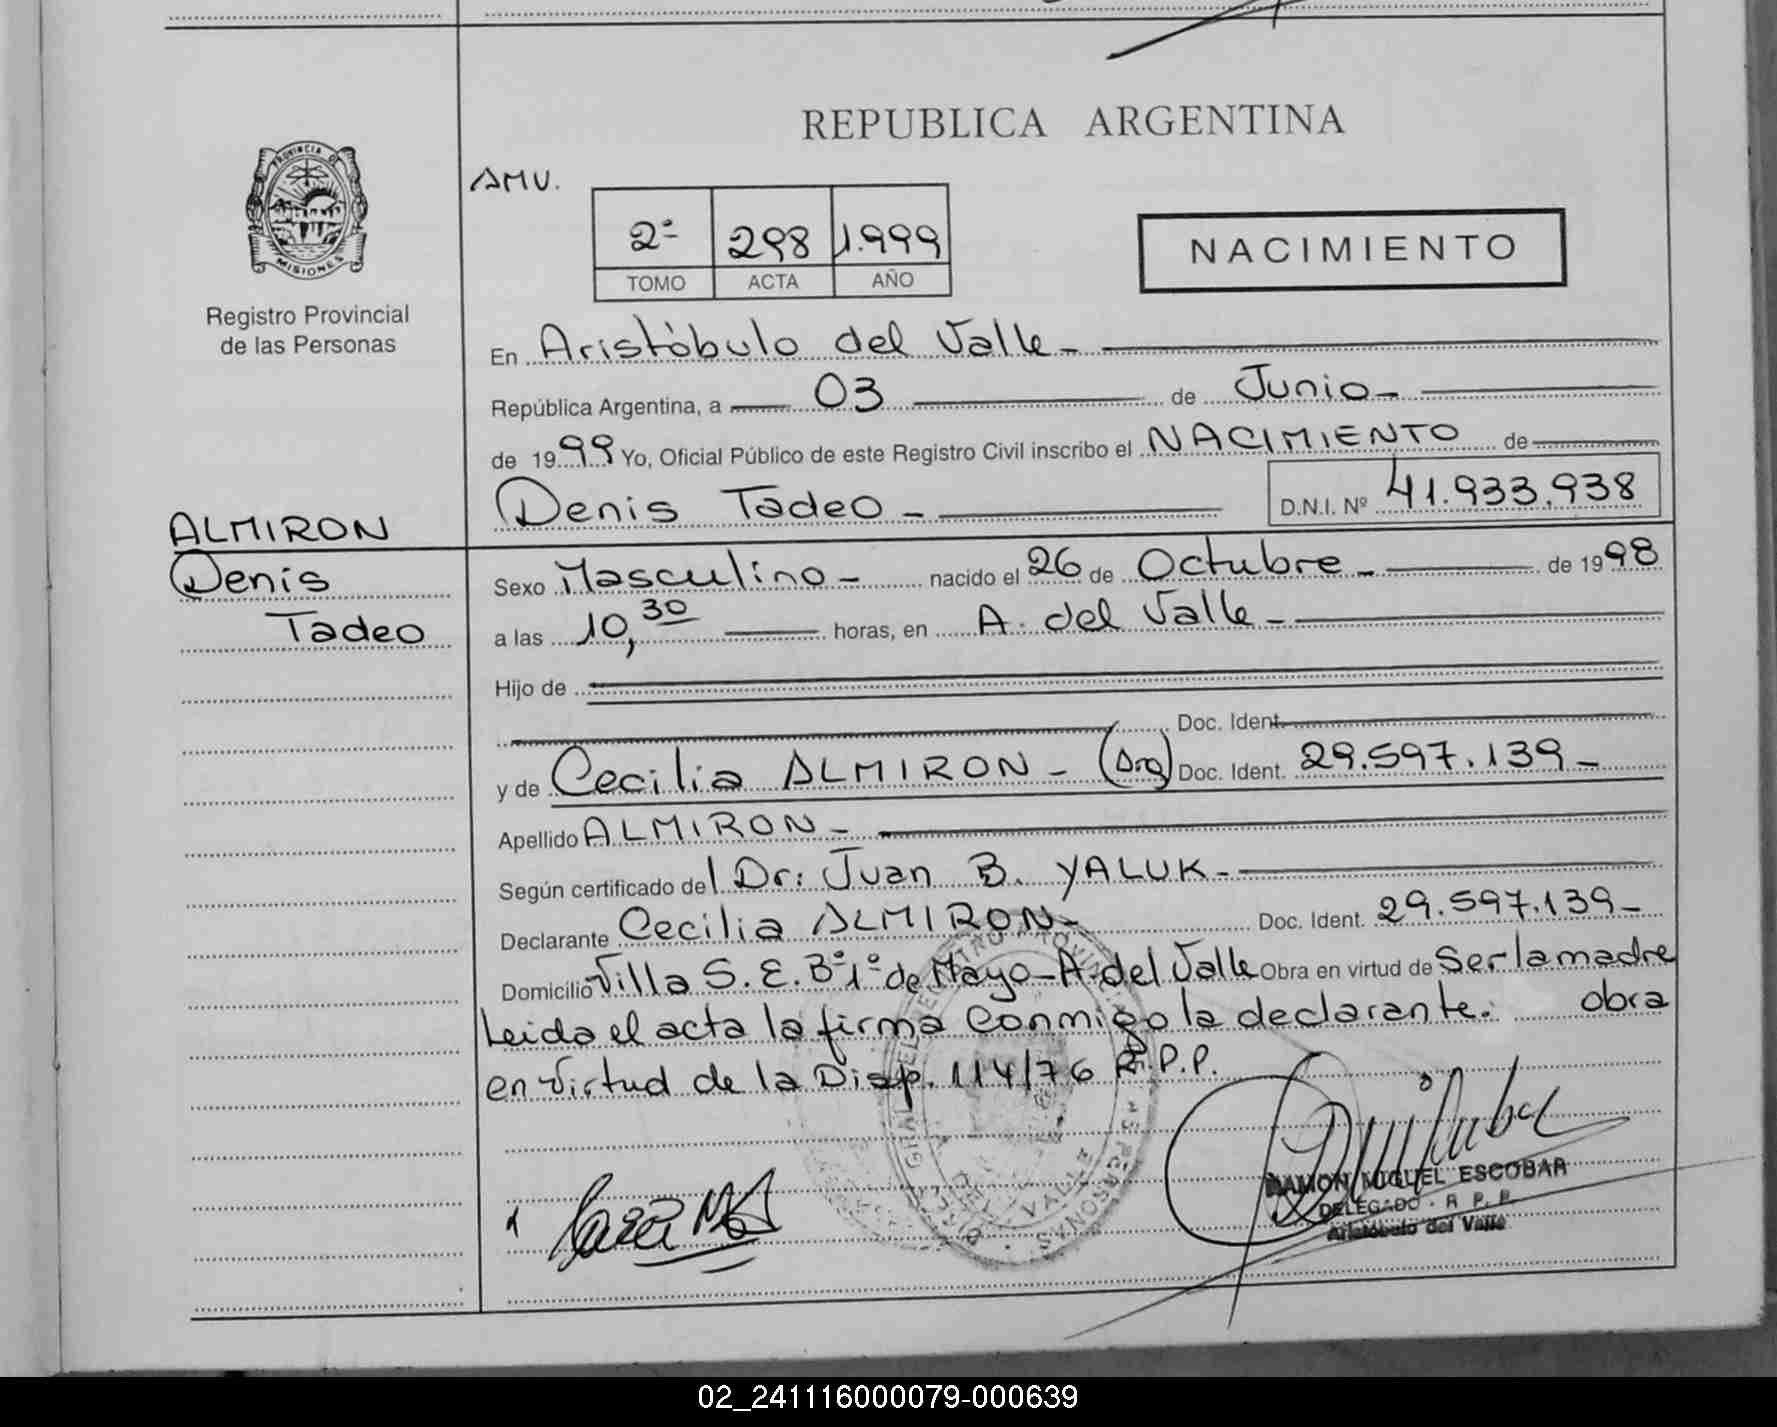 REPUBLICA ARGENTINA
PROVINCIA DE
MISIONES
Registro Provincial
de las Personas
AMV.
2º 298 1.999
TOMO ACTA AÑO
NACIMIENTO
En Aristóbulo del Valle
República Argentina, a 03 de Junio
de 1999 Yo, Oficial Público de este Registro Civil inscribo el NACIMIENTO de
Denis Tadeo D.N.I. Nº 41.933.938
ALMIRON
Denis
Tadeo
Sexo Masculino nacido el 26 de Octubre de 1998
a las 10,30 horas, en A. del Valle
Hijo de
Doc. Ident.
y de Cecilia ALMIRON - (Arg) Doc. Ident. 29.597.139
Apellido ALMIRON
Según certificado del Dr. Juan B. YALUK
Declarante Cecilia ALMIRON Doc. Ident. 29.597.139
Domicilio Villa S.E. Bº 1º de Mayo - A. del Valle Obra en virtud de Ser la madre
Leida el acta la firma conmigo la declarante. obra
en virtud de la Disp. 114/76 R.P.P.
RAMON MIGUEL ESCOBAR
DELEGADO - R. P. P.
Aristóbulo del Valle
02_241116000079-000639